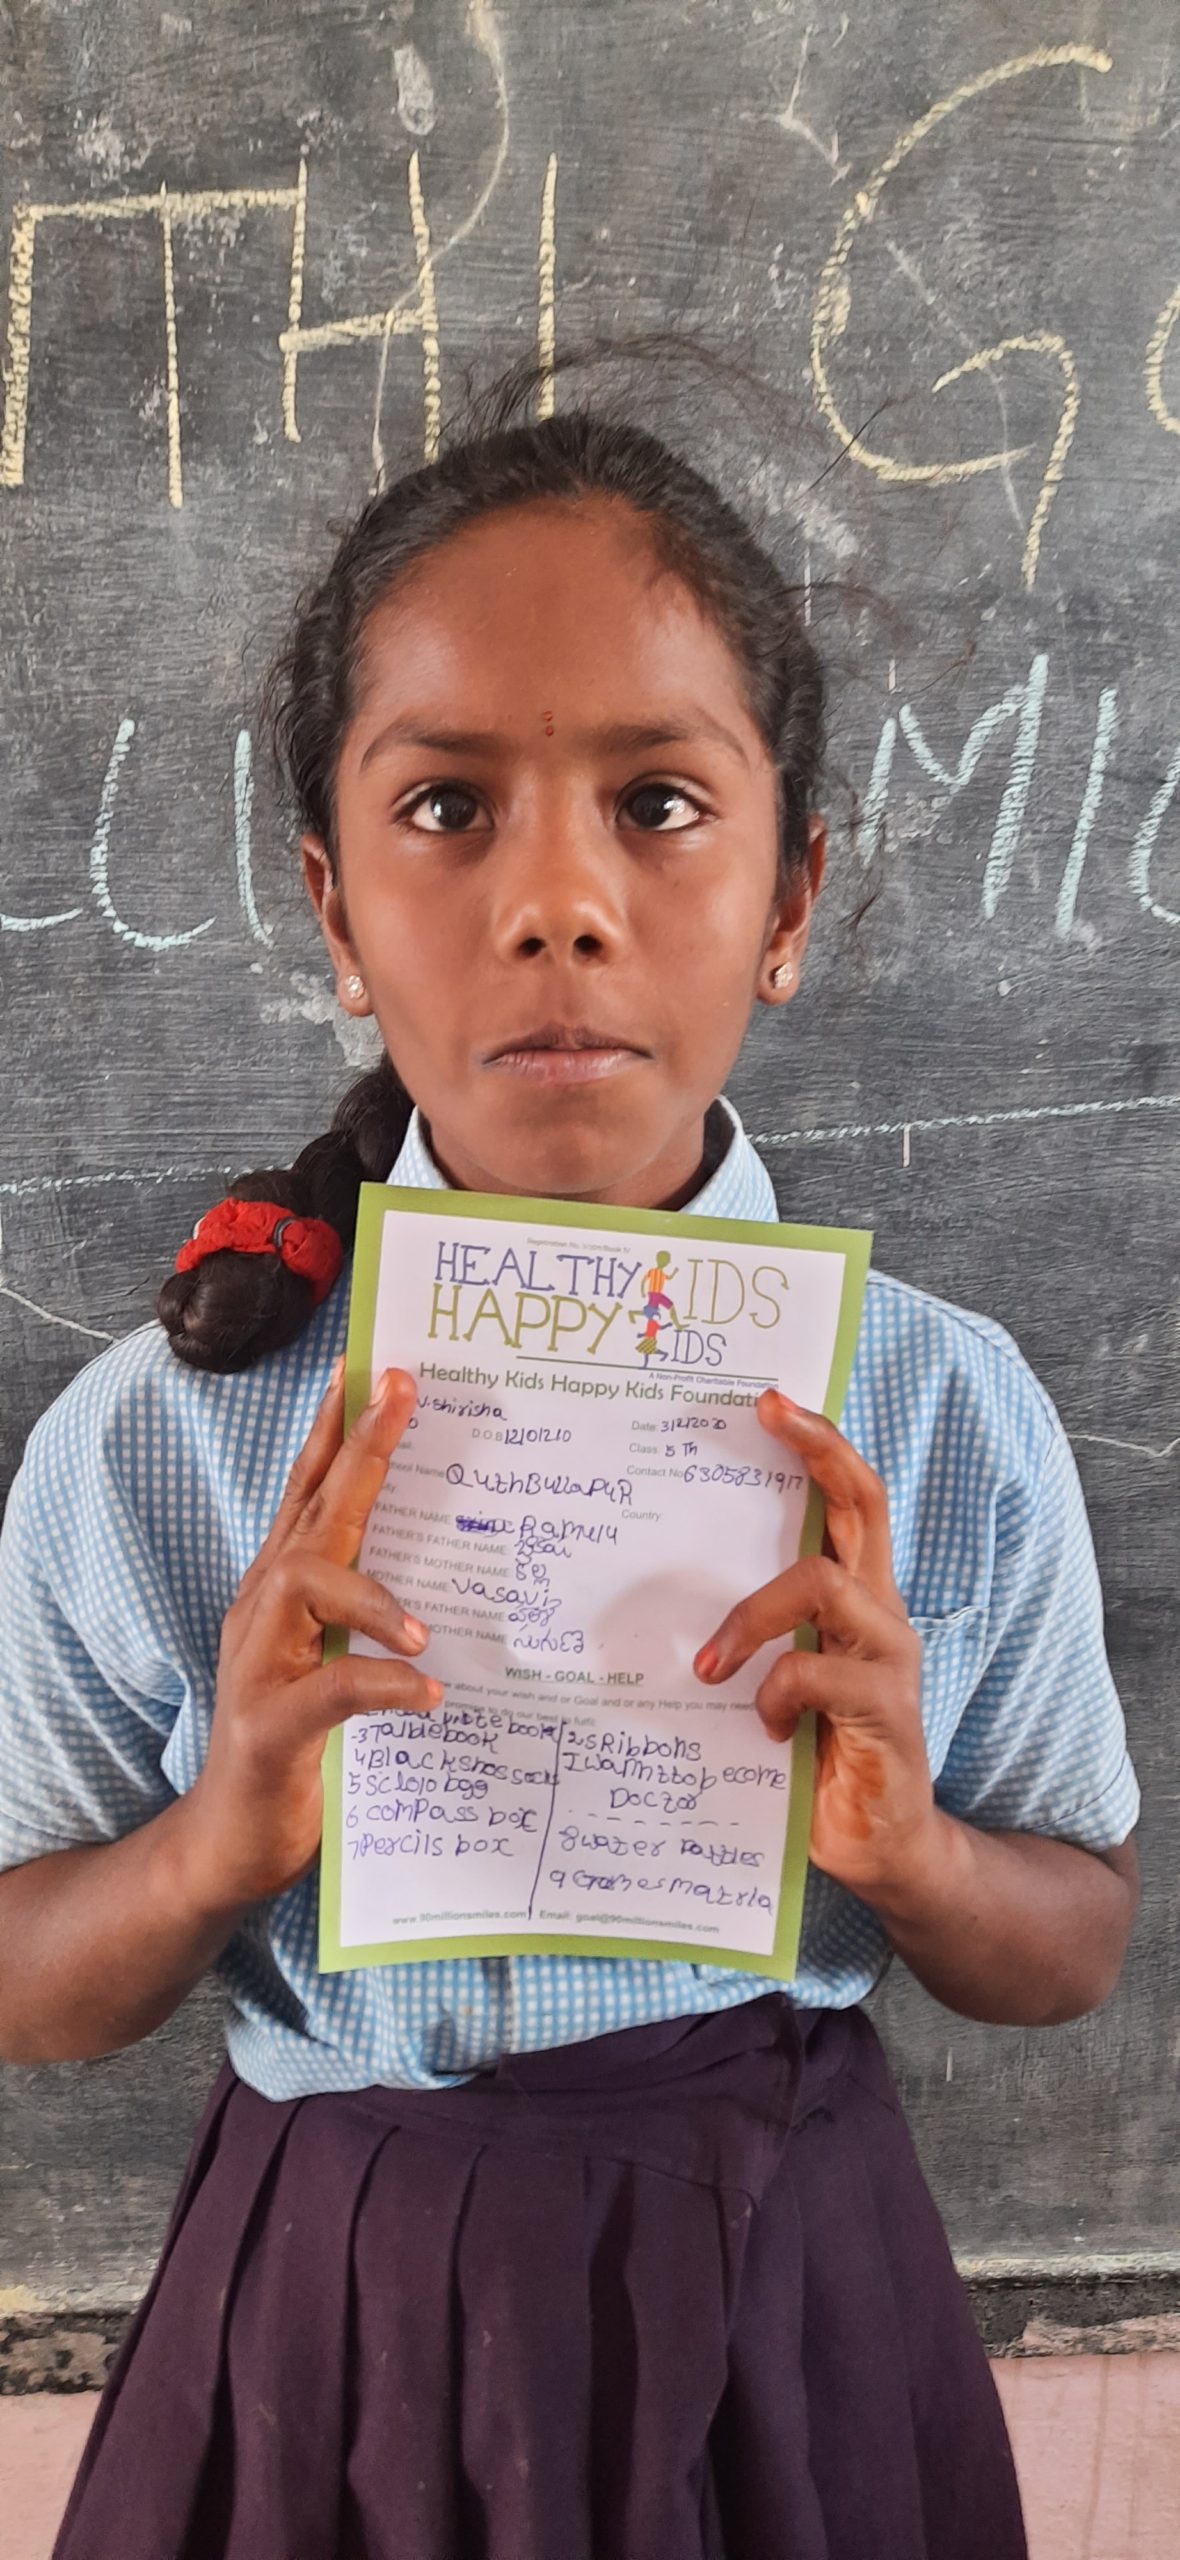 THI G
LU MIC
HEALTHY KIDS
HAPPY KIDS
A Non-Profit Charitable Foundation
Healthy Kids Happy Kids Foundati
V.Shirisha
Date: 3/2/2020
D.O.B 12/01210
Class: 5 Th
School Name QuthBullaPuR
Contact No 6305831917
Country:
FATHER NAME Ramulu
FATHER'S FATHER NAME:
FATHER'S MOTHER NAME
MOTHER NAME Vasavi
ER'S FATHER NAME
MOTHER NAME
WISH - GOAL - HELP
w about your wish and or Goal and or any Help you may need
promise to do our best to fulfil
note book
-3 Talblebook
4 Black shos socks
5 Sclolo bgg
6 comPass box
7 Percils box
2 s Ribbons
I wanht to become
Doctor
- - - - - - -
8 water battles
9 Games matrla
www.90millionsmiles.com Email: goal@90millionsmiles.com